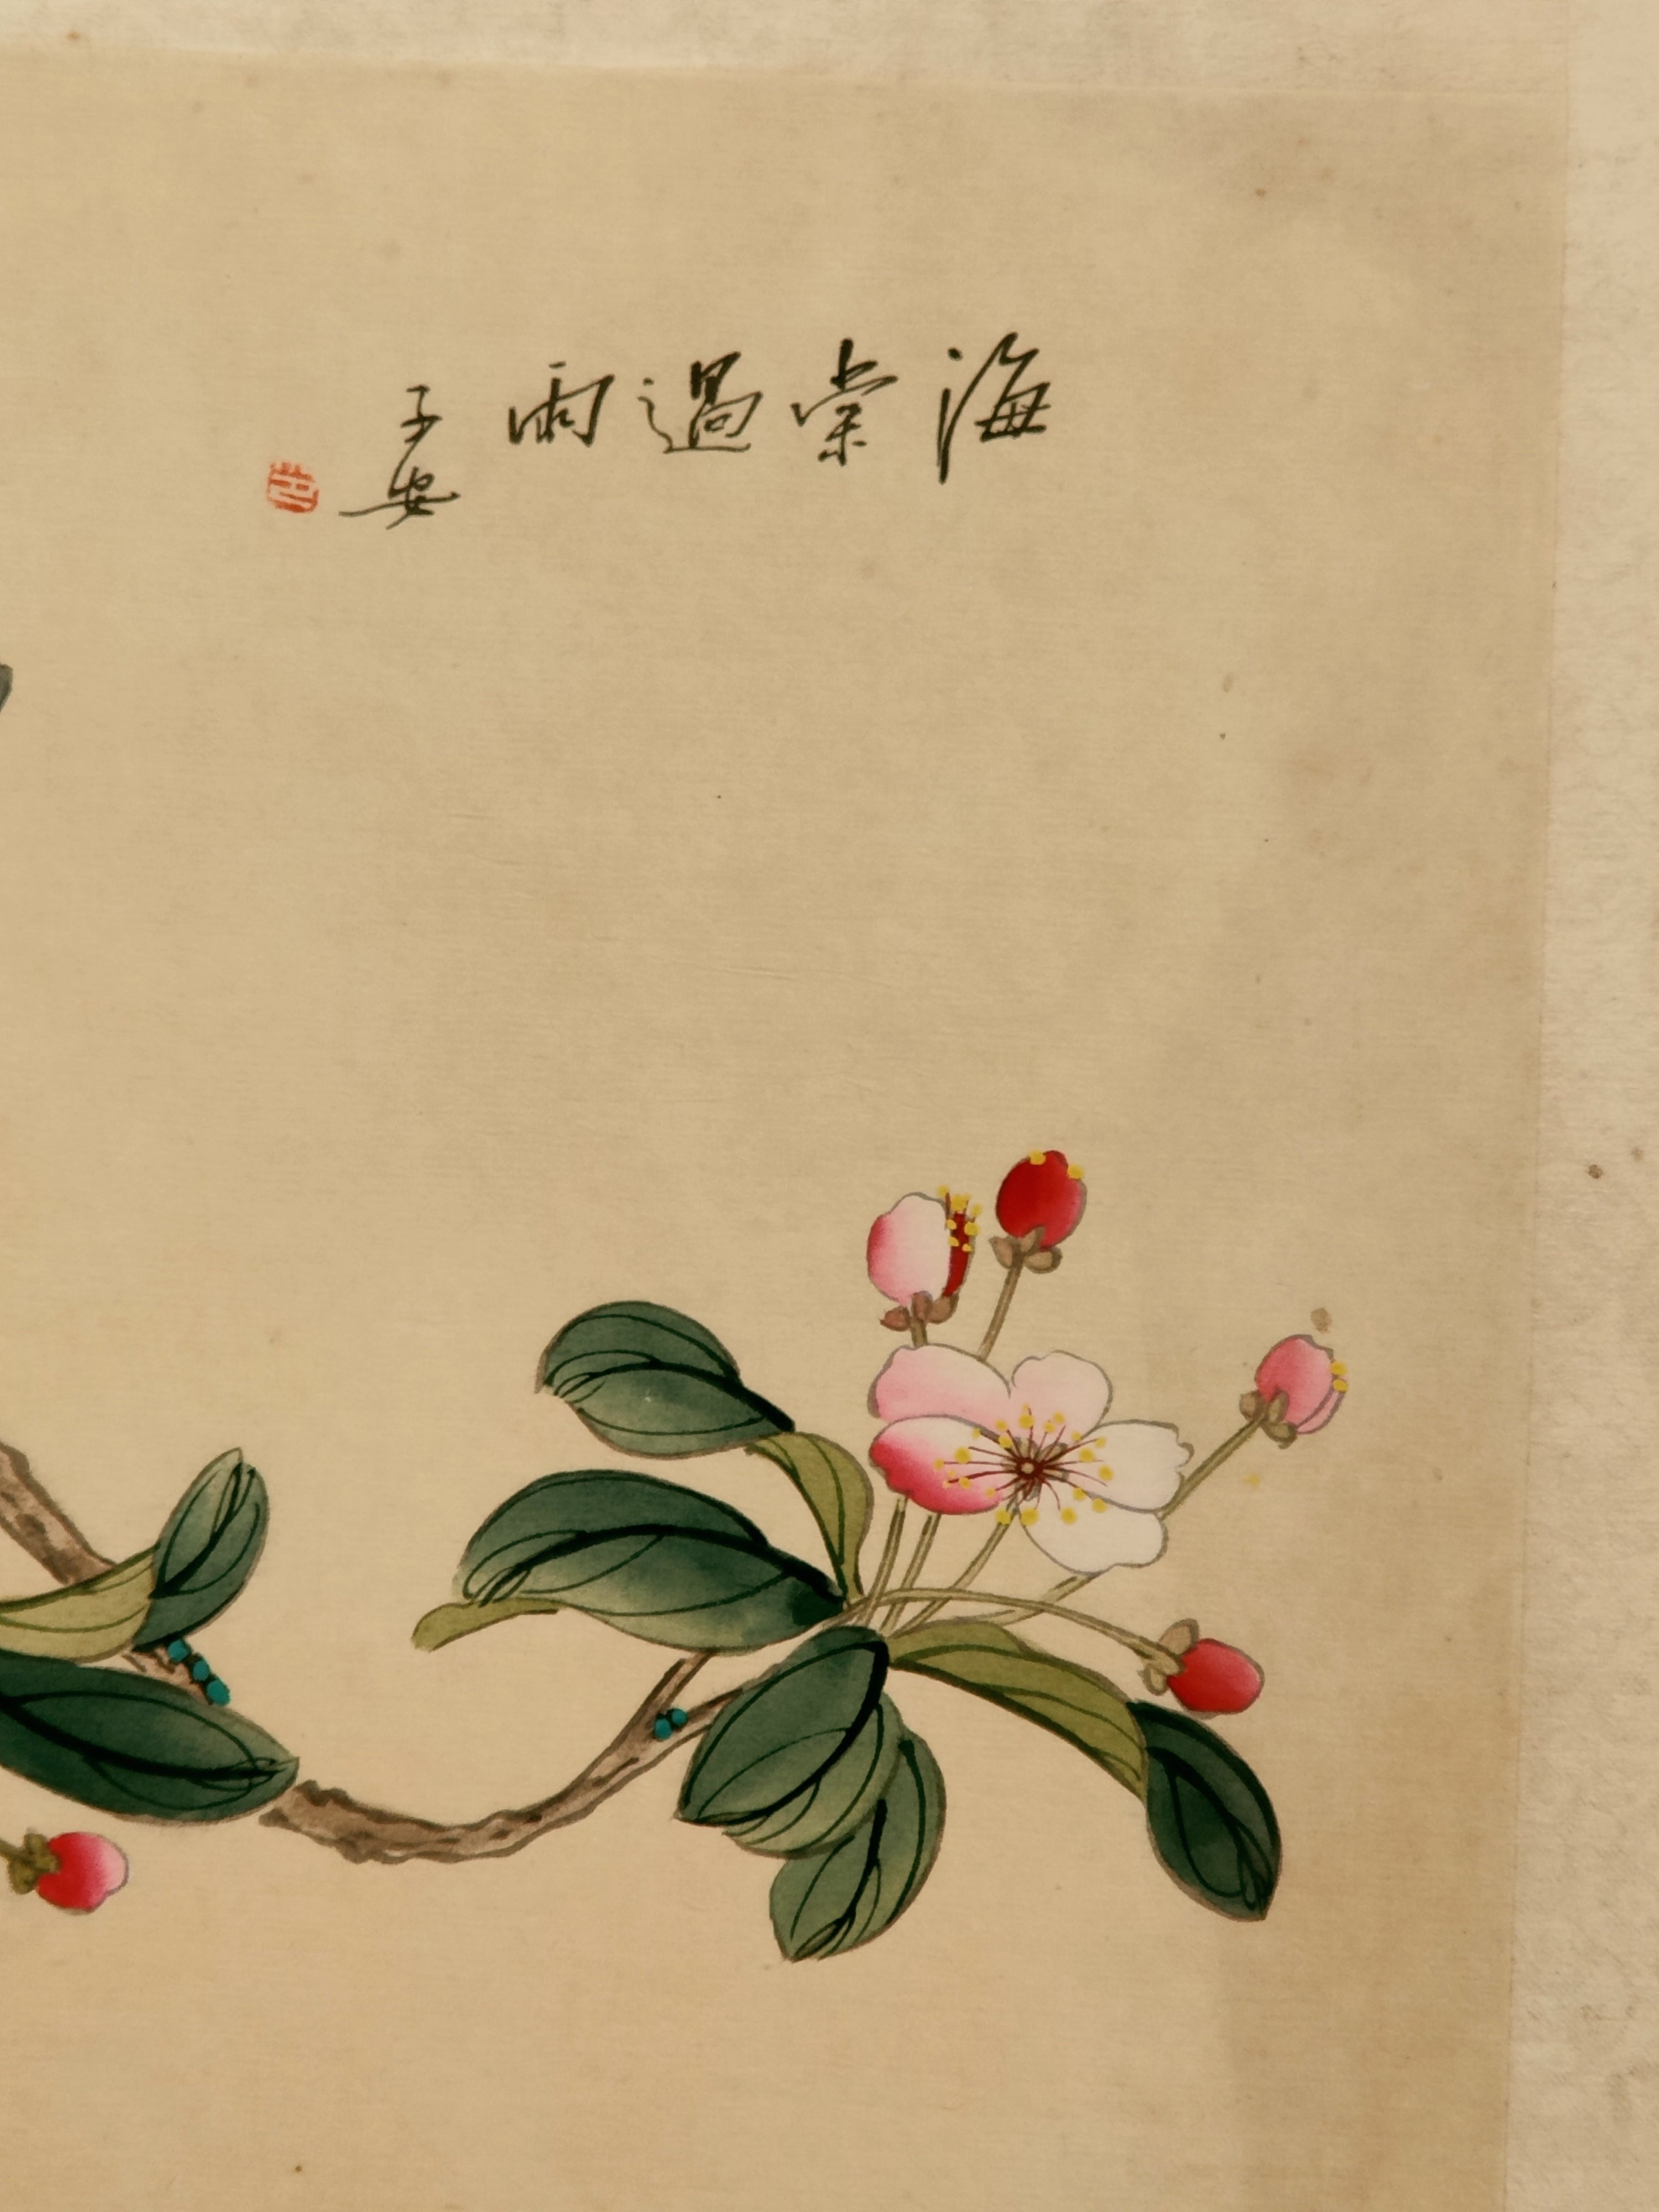 海棠過雨
子安